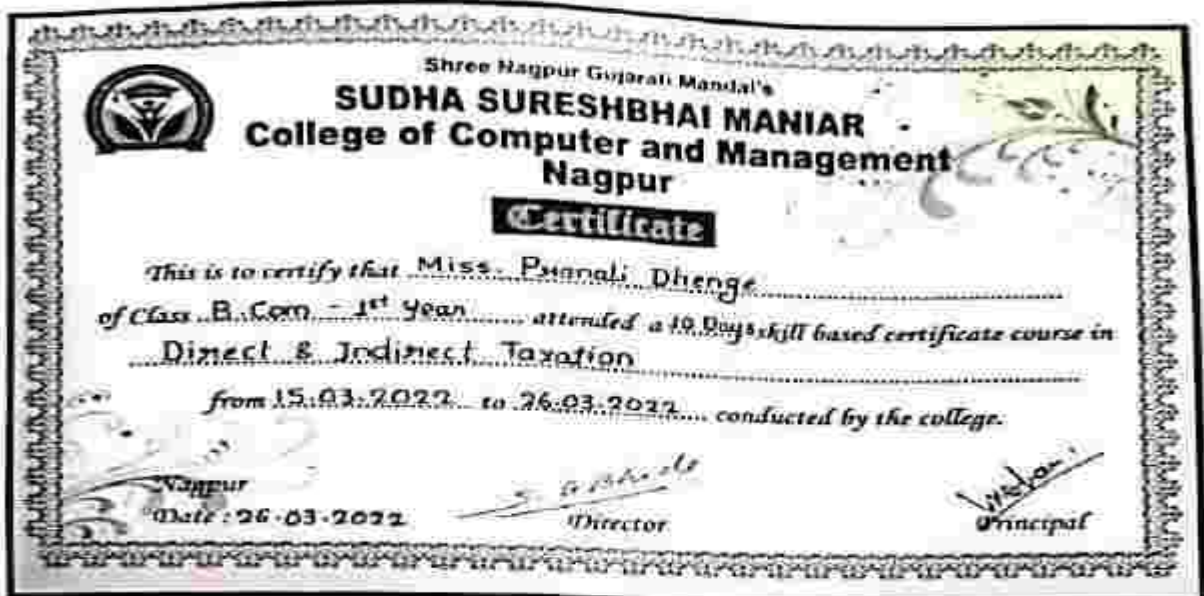 Shree Nagpur Gujarati Mandal's
SUDHA SURESHBHAI MANIAR
College of Computer and Management
Nagpur
Certificate
This is to certify that Miss. Pranali Dhenge
of Class B.Com - 1st Year attended a 10 Days skill based certificate course in
Direct & Indirect Taxation
from 15.03.2022 to 26.03.2022 conducted by the college.
Nagpur
Date : 26-03-2022
Director
Principal